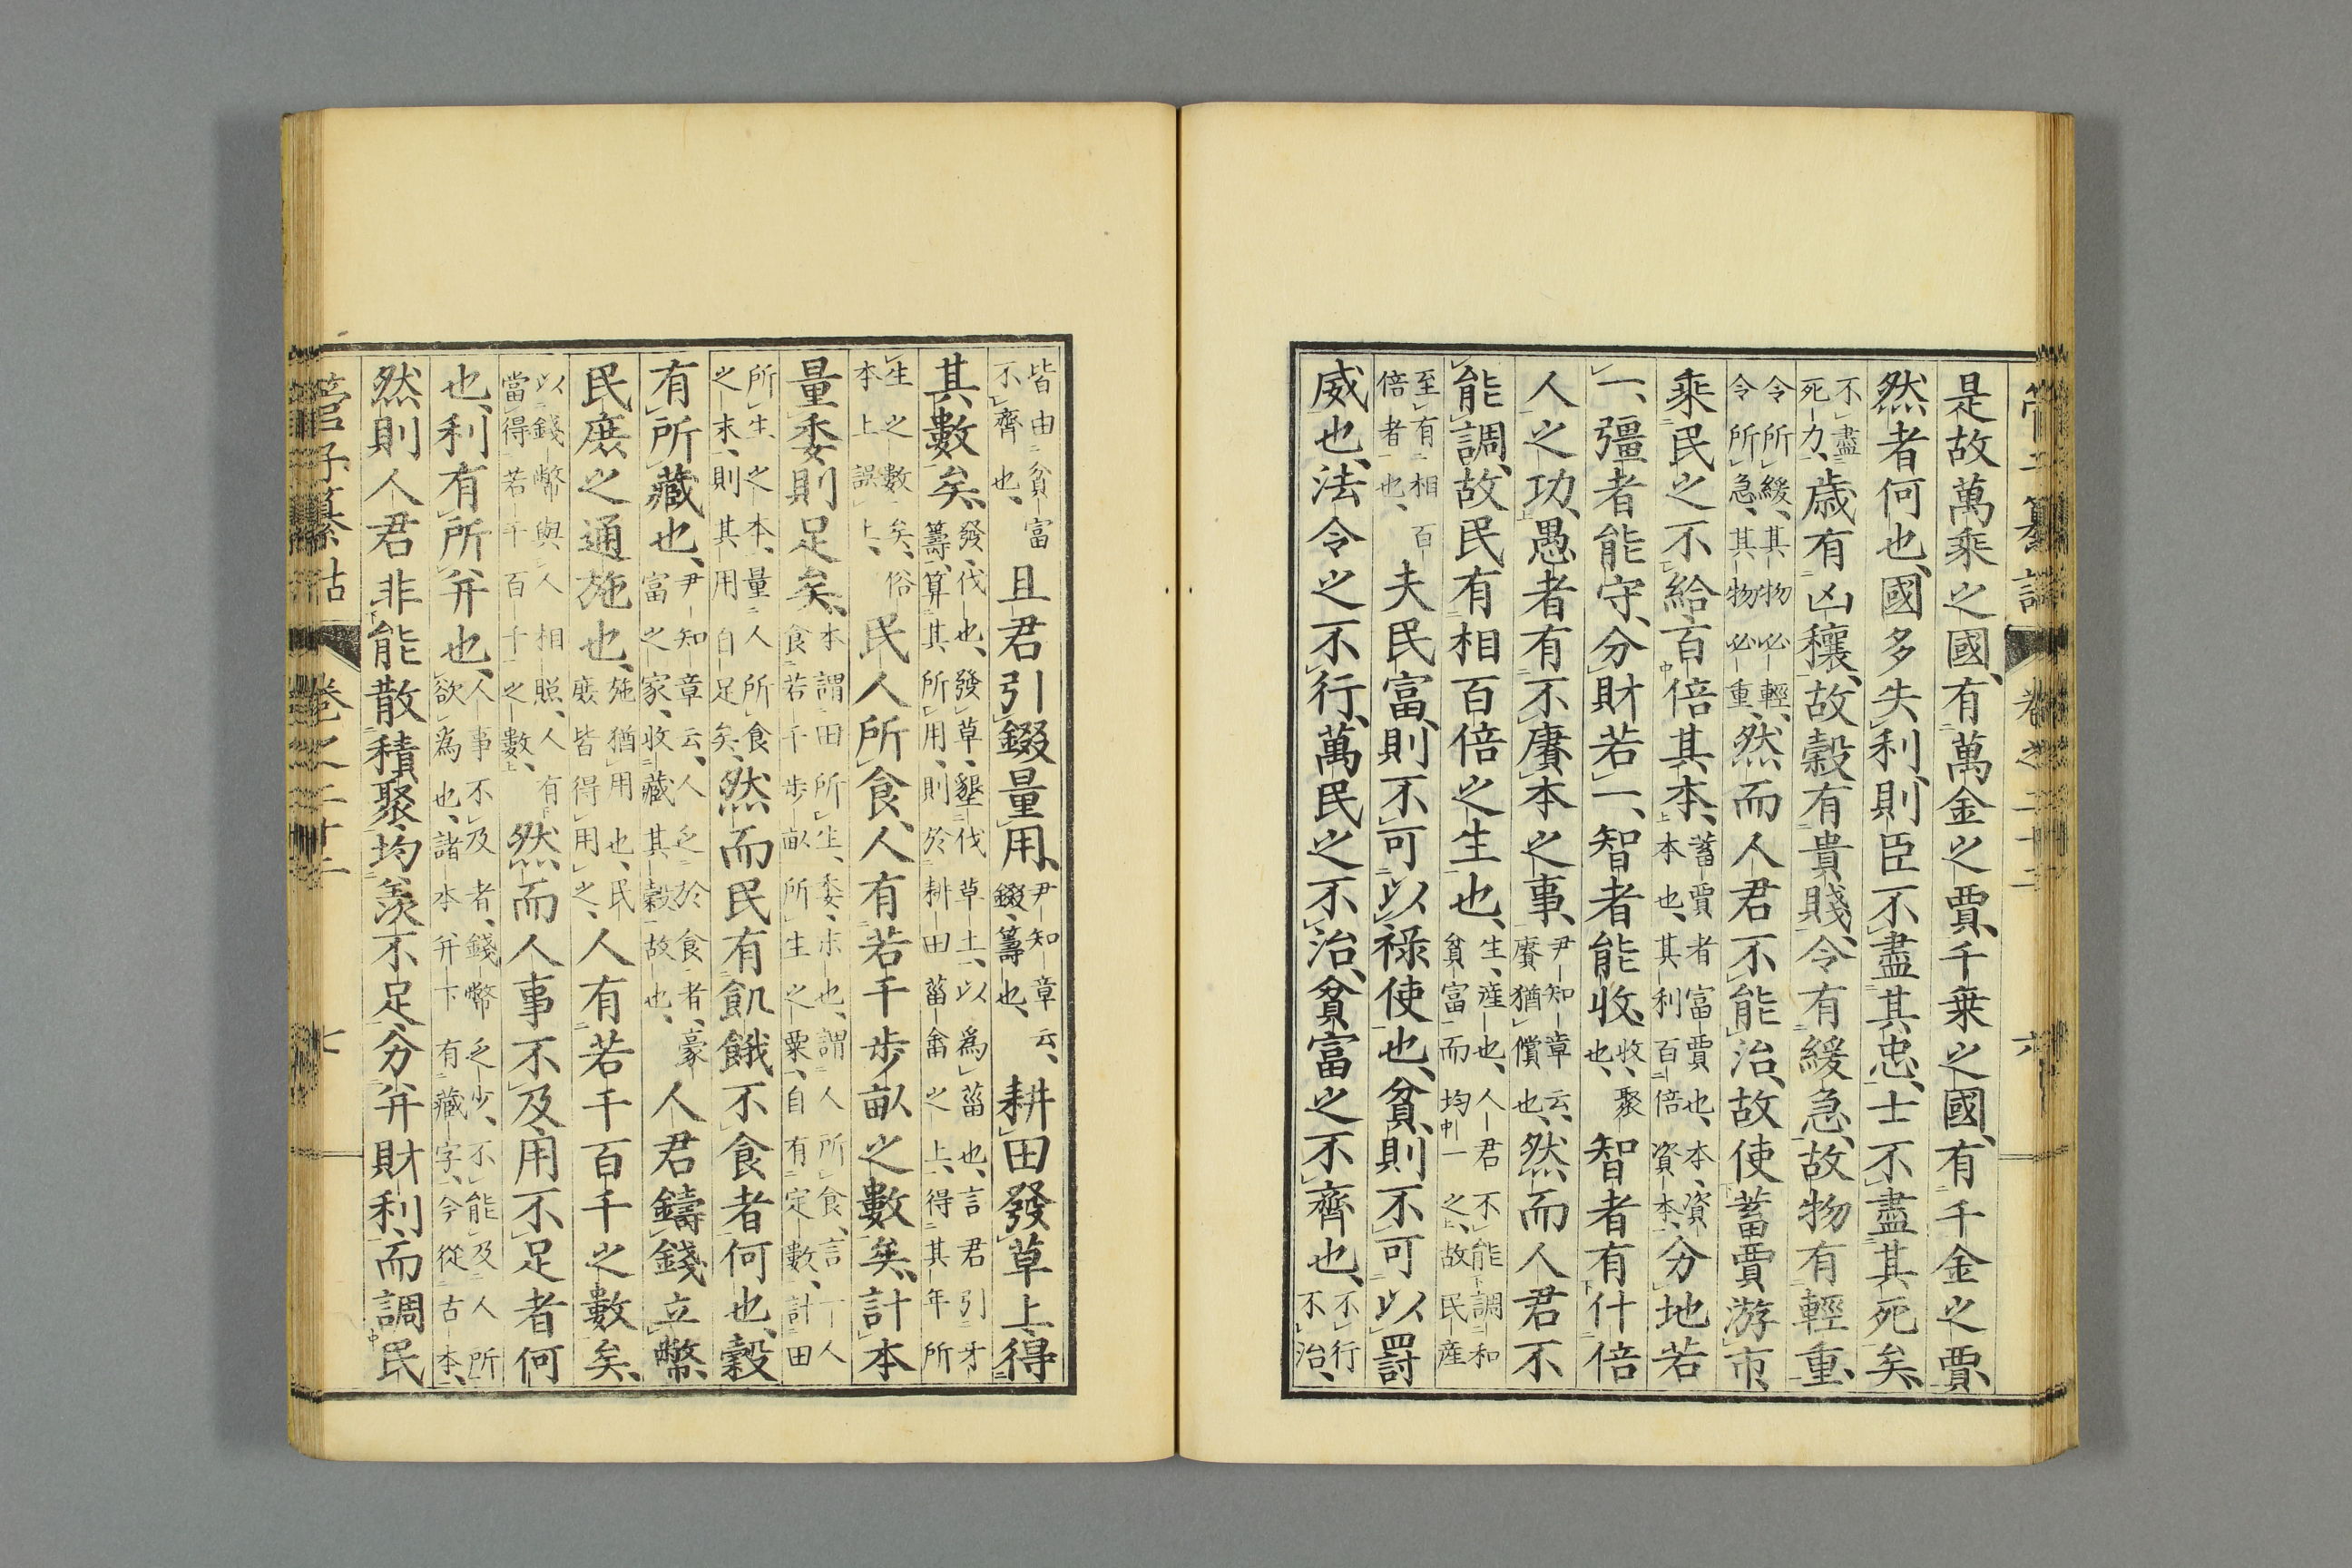 管子纂詁 卷之二十二 六
是故萬乘之國、有萬金之賈、千乗之國、有千金之賈、
然者何也、國多失利、則臣不盡其忠、士不盡其死矣、
不盡死力、歳有凶穰、故穀有貴賤、令有緩急、故物有輕重、
令所緩、其物必輕、令所急、其物必重、然而人君不能治、故使蓄賈游市、
乘民之不給、百倍其本、蓄賈者富賈也、本、資本也、其利百倍資本、分地若
一、彊者能守、分財若一、智者能收、收、聚也、智者有什倍
人之功、愚者有不賡本之事、尹知章云、賡猶償也、然而人君不
能調、故民有相百倍之生也、生、産也、人君不能調和貧富而均一之、故民産
至有相百倍者也、夫民富、則不可以祿使也、貧、則不可以罰
威也、法令之不行、萬民之不治、貧富之不齊也、不行不治、
皆由貧富不齊也、且君引錣量用、尹知章云、錣、籌也、耕田發草上、得
其數矣、發、伐也、發草、墾伐草土、以爲菑也、言君引牙籌、算其所用、則於耕田菑畬之上、得其年所
生之數矣、俗本上誤上、民人所食、人有若干步畝之數矣、計本
量委則足矣、本謂田所生、委、末也、謂人所食、言一人食若干步畝所生之粟、自有定數、計田
所生之本、量人所食之末、則其用自足矣、然而民有飢餓不食者何也、穀
有所藏也、尹知章云、人乏於食者、豪富之家、收藏其穀故也、人君鑄錢立幣、
民庻之通施也、施猶用也、民庻皆得用之、人有若干百千之數矣、
以錢幣與人相賑、人有當得若干百十之數、然而人事不及、用不足者何
也、利有所幷也、人事不及者、錢幣乏少、不能及人所欲爲也、諸本幷下有藏字、今從古本、
然則人君非能散積聚、均羨不足、分幷財利、而調民
管子纂詁 卷之二十二 七